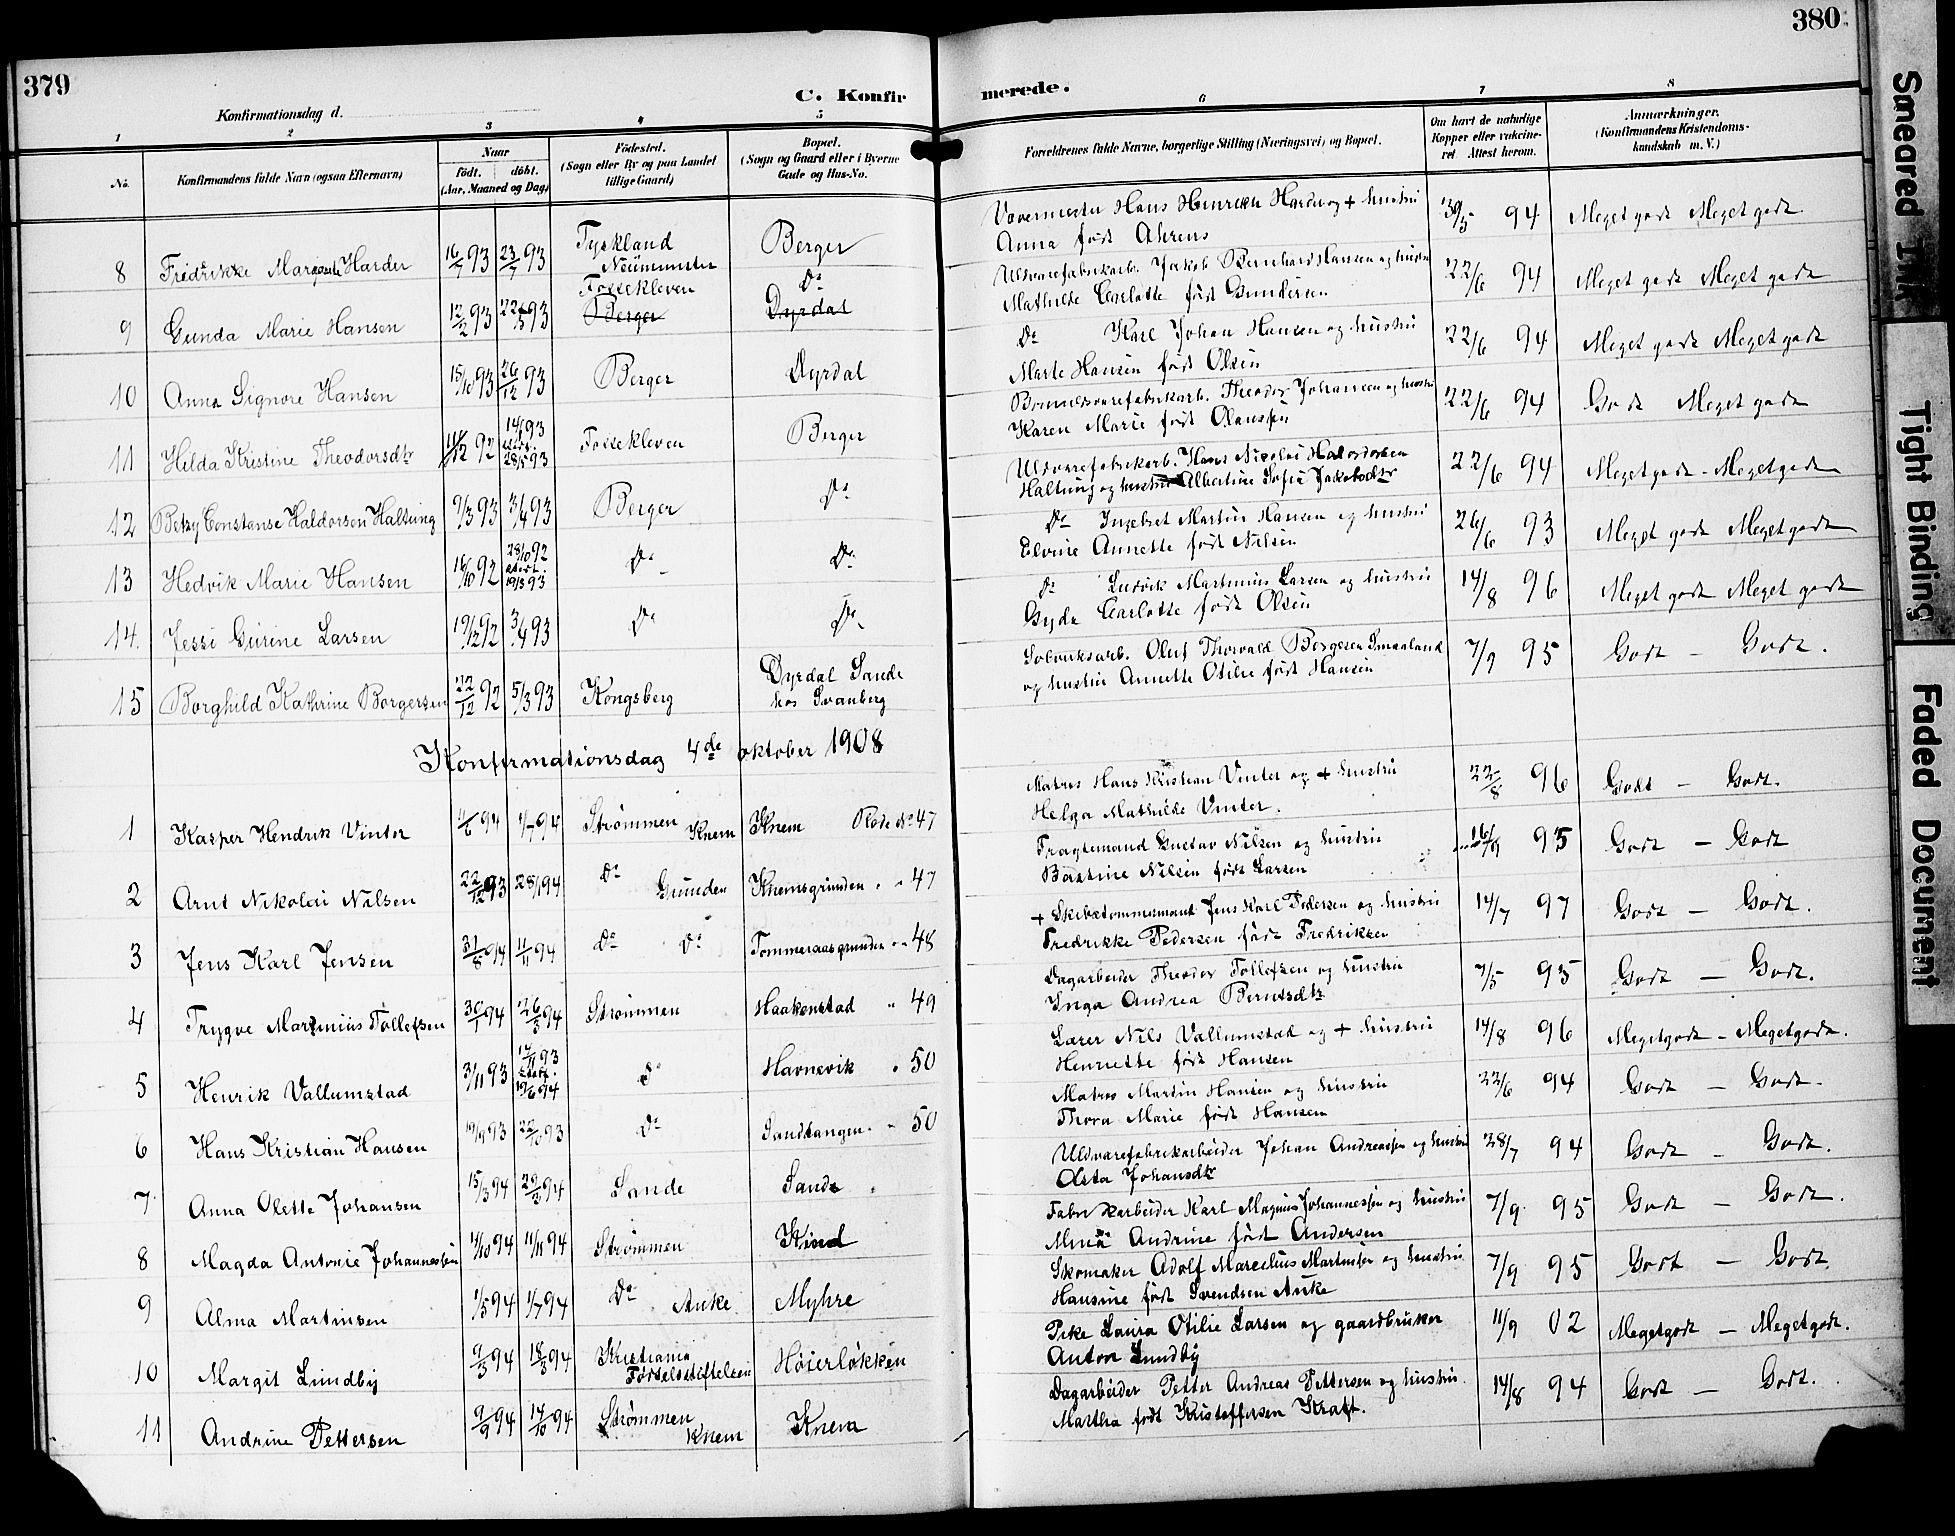 379
380
Smeared Ink
Tight Binding
Faded Document
Konfirmationsdag d.
C. Konfirmerede.
1 2 3 4 5 6 7 8
No. Konfirmandens fulde Navn (ogsaa Efternavn)
Naar født. døbt. (Aar, Maaned og Dag)
Fødested. (Sogn eller By og paa Landet tillige Gaard)
Bopæl. (Sogn og Gaard eller i Byerne Gade og Hus-No.
Forældrenes fulde Navne, borgerlige Stilling (Næringsvei) og Bopæl.
Om havt de naturlige Kopper eller vakcineret. Attest herom.
Anmærkninger. (Konfirmandens Kristendomskundskab m. V.)
8 Fredrikke Margrete Harder 16/7 93 23/7 93 Tyskland Neumunster Berger Vævermester Hans Heinrich Harder og + hustru
Anna født Ahrens 30/5 94 Meget godt Meget godt.
9 Gunda Marie Hansen 12/2 93 22/5 93 Fossekleven Berger Do Dyrdal Uldvarefabrikarb. Jakob Bernhard Hansen og hustru
Mathilde Charlotte født Gundersen 22/6 94 Meget godt Meget godt
10 Anna Signore Hansen 15/10 93 26/12 93 Berger Dyrdal Do Karl Johan Hansen og hustru
Marte Hansen født Olsen 22/6 94 Meget godt Meget godt
11 Hilda Kristine Theodorsdtr 11/12 92 28/5 93 Fossekleven Berger Bomuldsvarefabrikarb. Theodor Johansen og hustru
Karen Marie født Olaussen 22/6 94 Godt Meget godt
12 Betzy Constanse Haldorsen Haltung 9/3 93 3/4 93 Berger Do Uldvarefabrikarb. Hans Nicolai Haldorsen
Haltung og hustru Albertine Sofie Jakobsdtr 22/6 94 Megetgodt - Megetgodt
13 Hedvik Marie Hansen 16/10 92 28/10 92 19/3 93 Do Do Do Ingebret Martin Hansen og hustru
Elvine Annette født Nilsen 26/6 93 Meget godt Megetgodt
14. Jessi Gurine Larsen 19/12 92 3/4 93 Do Do Do Ludvik Martinius Larsen og hustru
Gyda Charlotte født Olsen 14/8 96 Meget godt Meget godt
15 Borghild Kathrine Borgersen 22/12 92 5/3 93 Kongsberg Dyrdal Sande hos Svanberg Sølvverksarb. Oluf Thorvald Borgesen Smaaland
og hustru Annette Otilie født Hansen 7/9 95 Godt - Godt.
Konfirmationsdag 4de oktober 1908
1 Kasper Hendrik Vinter 11/6 94 1/7 94 Strømmen Knem Knem Rode No 47 Matros Hans Kristian Vinter og + hustru
Helga Mathilde Vinter. 22/8 96 Godt - Godt.
2 Arnt Nikolai Nilsen 22/12 93 28/1 94 Do Grunden Knemsgrunden " " 47 Fragtemand Gustav Nilsen og hustru
Bastine Nilsen født Larsen 16/9 95 Godt - Godt
3 Jens Karl Jensen 31/8 94 11/11 94 Do Do Tommeraasgrunden " " 48 + Skibstømmermand Jens Karl Pedersen og hustru
Fredrikke Pedersen født Fredriksen 14/7 97 Godt - Godt.
4 Trygve Martinius Tollefsen 30/1 94 26/3 94 Strømmen Haakenstad " 49 Dagarbeider Theodor Tollefsen og hustru
Inga Andrea Berntsdtr 7/5 95 Godt - Godt.
5 Henrik Vallumstad 3/11 93 12/11 93 19/6 94 Do Havnevik " 50 Lærer Nils Vallumstad og + hustru
Henriette født Hansen 14/8 96 Megetgodt - Megetgodt.
6 Hans Kristian Hansen 19/9 93 22/10 93 Do Sandtangen " 50 Matros Martin Hansen og hustru
Thora Marie født Hansen 22/6 94 Godt - Godt.
7 Anna Olette Johansen 15/3 94 29/3 94 Sande Sande Uldvarefabrikarbeider Johan Andreassen og hustru
Olsta Johansdtr 28/7 94 Godt - Godt.
8 Magda Antonie Johannessen 11/10 94 11/11 94 Strømmen Kind Fabrikarbeider Karl Magnus Johannessen og hustru
Mina Andrine født Andersen 7/9 95 Godt - Godt.
9 Alma Martinsen 1/5 94 1/7 94 Do Anke Myhre Skomaker Adolf Marcelius Martinsen og hustru
Hansine født Svendsen Anke 7/9 95 Godt - Godt.
10 Margit Lundby 9/3 94 18/3 94 Kristiania Fødselsstiftelsen Høierløkken Pike Laura Otilie Larsen og gaardbruker
Anton Lundby 11/9 02 Megetgodt - Megetgodt.
11 Andrine Pettersen 9/9 94 14/10 94 Strømmen Knem Knem Dagarbeider Petter Andreas Pettersen og hustru
Martha født Kristoffersen Kraft. 14/8 94 Godt - Godt.